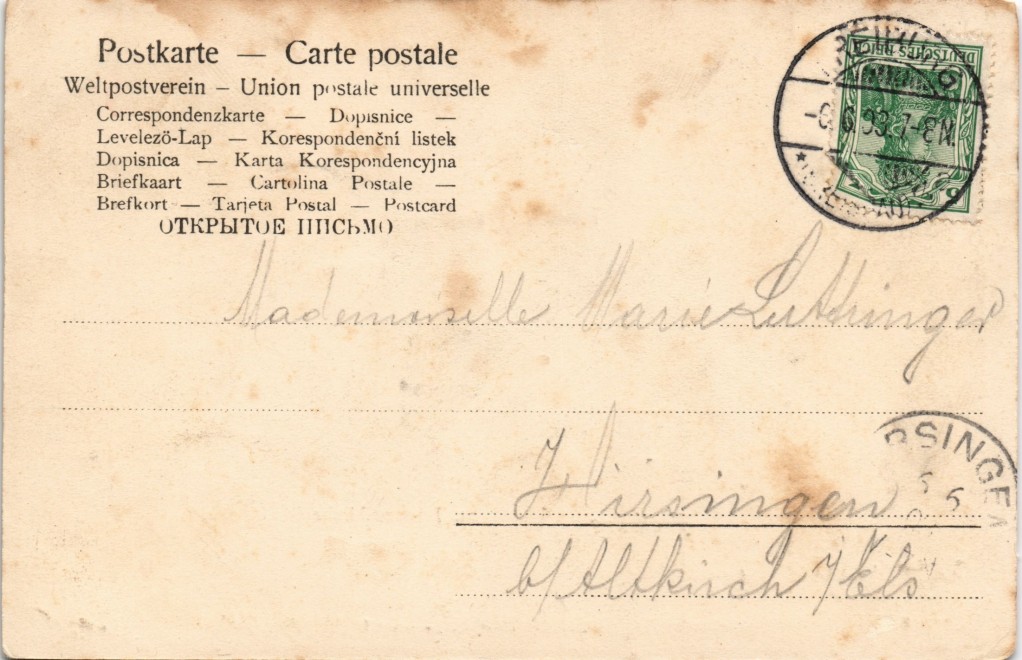 Postkarte — Carte postale
Weltpostverein – Union postale universelle
Correspondenzkarte — Dopisnice —
Levelező-Lap — Korespondenční listek
Dopisnica — Karta Korespondencyjna
Briefkaart — Cartolina Postale —
Brefkort — Tarjeta Postal — Postcard
ОТКРЫТОЕ ПИСЬМО
DEUTSCHES REICH
5
7-8N.
Mademoiselle Marie Luttringer
SINGEN
6 6
Hirsingen
b/Altkirch /Els